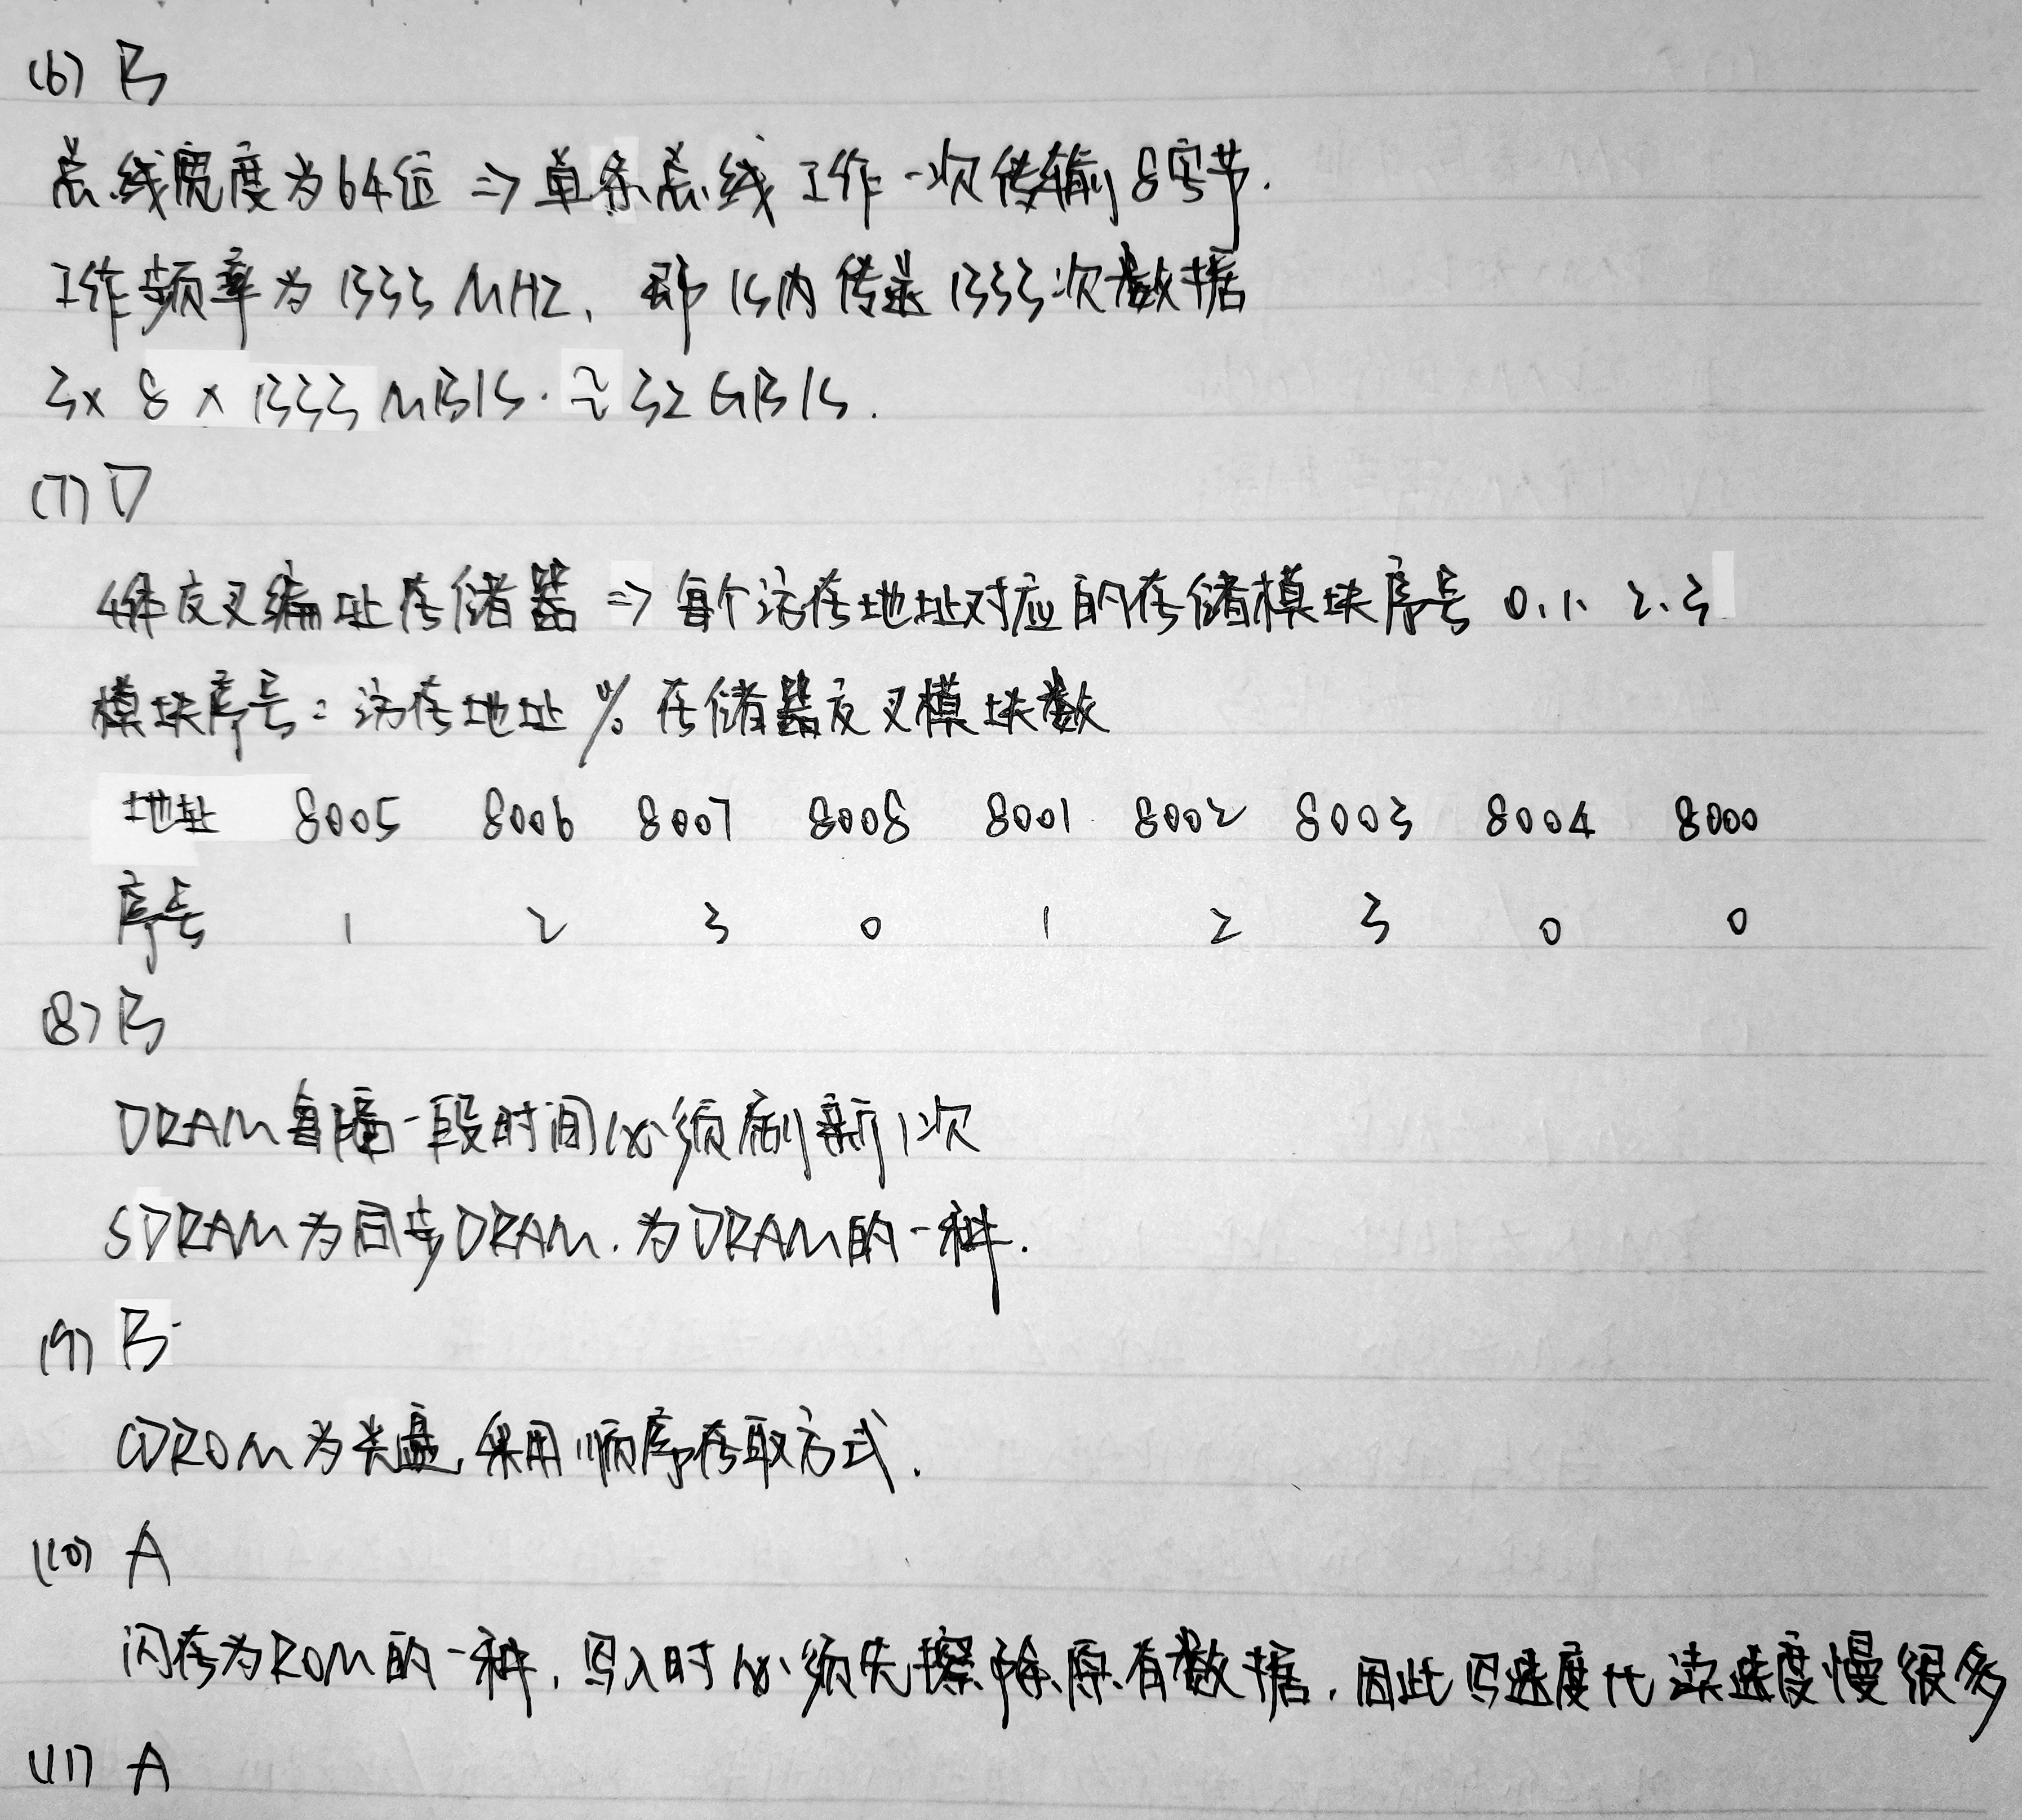 (6) B
总线宽度为64位 => 单条总线工作一次传输8字节.
工作频率为1333MHZ, 即1s内传送1333次数据
3x 8 x 1333 MB/s. ≈ 32 GB/s.
(7) D
4体交叉编址存储器 => 每个访存地址对应的存储模块序号 0.1. 2.3
模块序号 = 访存地址 % 存储器交叉模块数
地址 8005 8006 8007 8008 8001 8002 8003 8004 8000
序号 1 2 3 0 1 2 3 0 0
(8) B
DRAM每隔一段时间必须刷新1次
SDRAM为同步DRAM. 为DRAM的一种.
(9) B
CDROM为光盘, 采用顺序存取方式.
(10) A
闪存为ROM的一种, 写入时必须先擦除原有数据, 因此写速度比读速度慢很多
(11) A